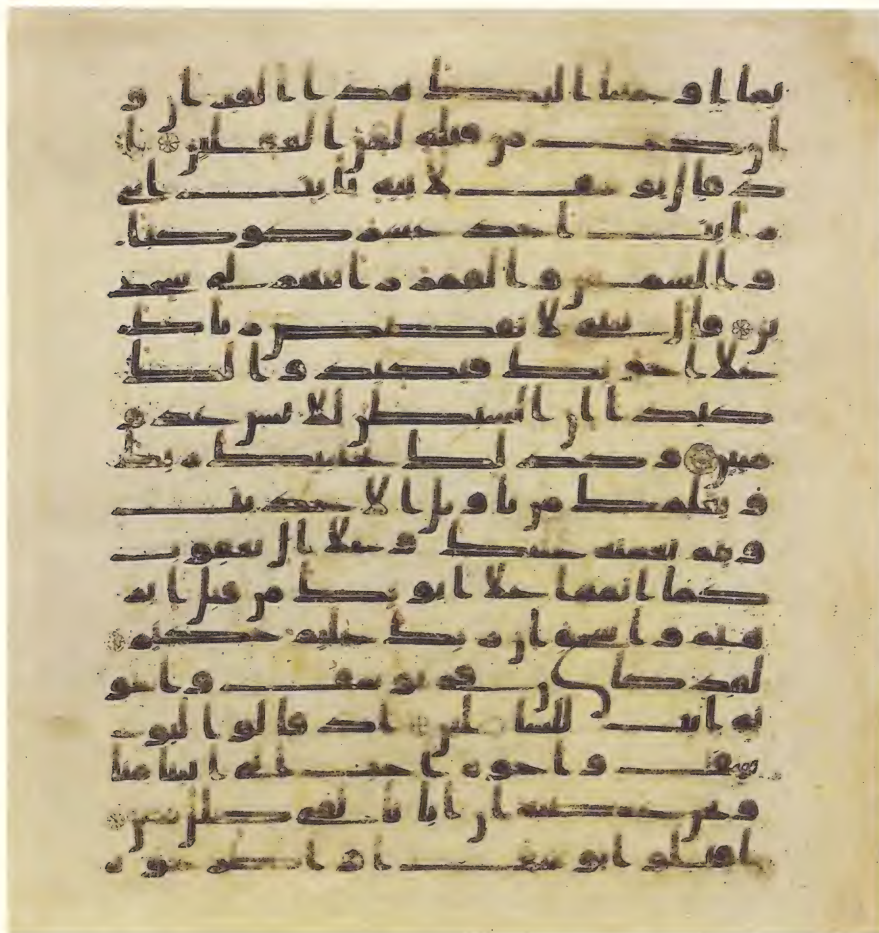 بما اوحينا اليك هذا القران و
ان كنت من قبله لمن الغفلين ا
ذ قال يوسف لابيه يابت اني
رايت احد عشر كوكبا
والشمس والقمر رايتهم لي سجد
ين قال يبني لا تقصص رياك
علا اخوتك فيكيدوا لك
كيدا ان الشيطن للانسن عدو
مبين وكذلك يجتبيك ربك
ويعلمك من تاويل الاحديث
ويتم نعمته عليك وعلا ال يعقوب
كما اتمها علا ابويك من قبل ابر
هيم واسحق ان ربك عليم حكيم
لقد كان في يوسف واخو
ته ايت للسايلين اذ قالوا ليو
سف واخوه احب الى ابينا منا
ونحن عصبة ان ابانا لفي ضلل مبين
اقتلوا يوسف او اطرحوه